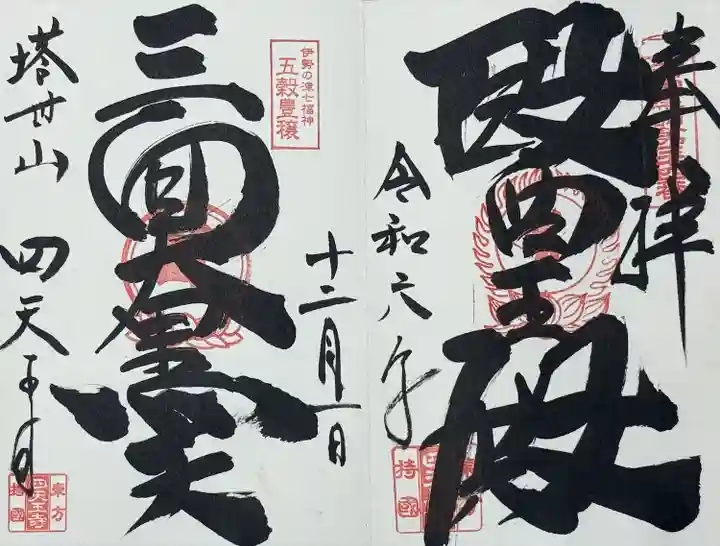 奉拝
醫王殿
令和六年
持國
十二月一日
伊勢の津七福神
五穀豊穣
三面大黒天
塔世山 四天王寺
東方
四天王寺
持國